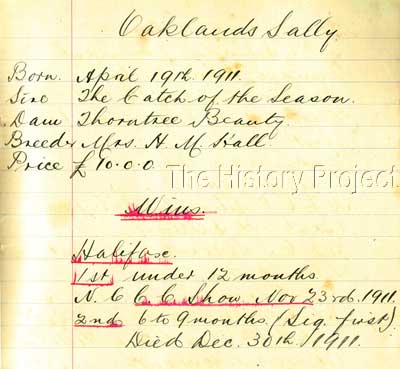 Oaklands Sally
Born. April 19th. 1911.
Sire The Catch of the Season.
Dam Thorntree Beauty.
Breeder Mrs. H. M. Hall.
Price £10.0.0
The History Project
Wins.
Halifax.
1st under 12 months.
N. C. C. C. Show Nov 23rd. 1911.
2nd 6 to 9 months. (Sig. first)
Died Dec. 30th. 1911.